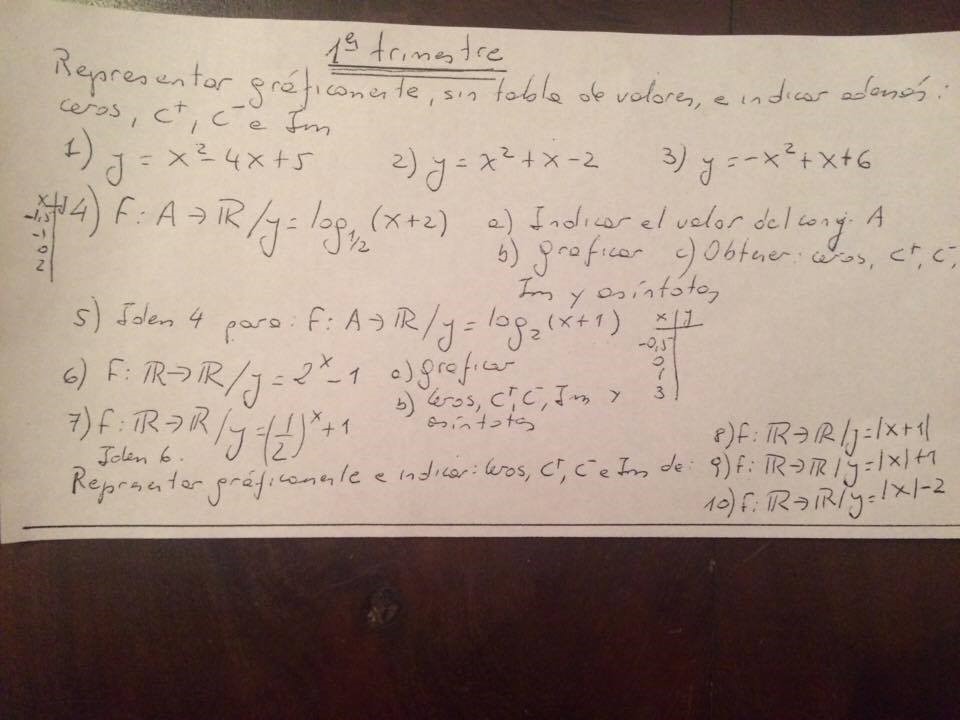 1er trimestre
Representar gráficamente, sin tabla de valores, e indicar además:
ceros, C⁺, C⁻ e Im
1) y = x² - 4x + 5 2) y = x² + x - 2 3) y = -x² + x + 6
4) F: A → ℝ / y = log₁/₂ (x+2) a) Indicar el valor del conj. A
x | y
-1,5
-1
0
2
b) graficar c) Obtener: ceros, C⁺, C⁻,
Im y asíntotas
5) Idem 4 para: F: A → ℝ / y = log₂ (x+1)
x | y
-0,5
0
1
3
6) F: ℝ → ℝ / y = 2ˣ - 1 a) graficar
b) ceros, C⁺, C⁻, Im y
asíntotas
7) f: ℝ → ℝ / y = (1/2)ˣ + 1
Idem 6.
Representar gráficamente e indicar: ceros, C⁺, C⁻ e Im de:
8) f: ℝ → ℝ / y = |x+1|
9) f: ℝ → ℝ / y = |x| + 1
10) f: ℝ → ℝ / y = |x| - 2